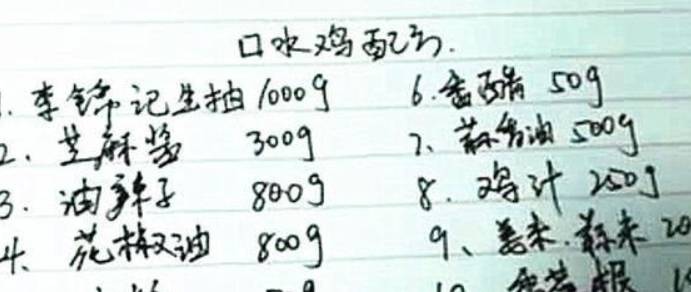 口水鸡配方.
1. 李锦记生抽 1000g 6. 香醋 50g
2、芝麻酱 300g 7、蒜香油 500g
3. 油辣子 800g 8. 鸡汁 250g
4、花椒油 800g 9、姜末.蒜末 20